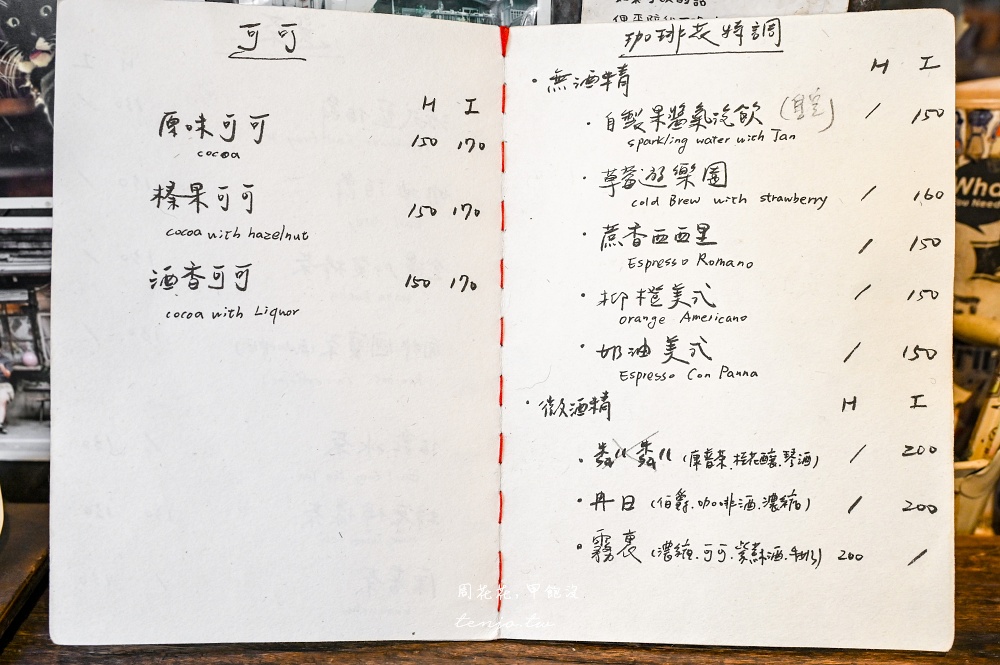 可可
H I
原味可可 150 170
cocoa
榛果可可 150 170
cocoa with hazelnut
酒香可可 150 170
cocoa with Liquor
珈琲表特調
・無酒精 H I
・自製果醬氣泡飲 / 150
sparkling water with Jan
・草莓遊樂園 / 160
cold Brew with strawberry
・蔗香西西里 / 150
Espresso Romano
・柳橙美式 / 150
orange Americano
・奶油美式 / 150
Espresso Con Panna
・微酒精 H I
/ 200
・丹日 (伯爵.咖啡酒.濃縮) / 200
・霧裏 (濃縮.可可.紫蘇酒.牛奶) 200 /
周花花,甲飽沒
tenjo.tw